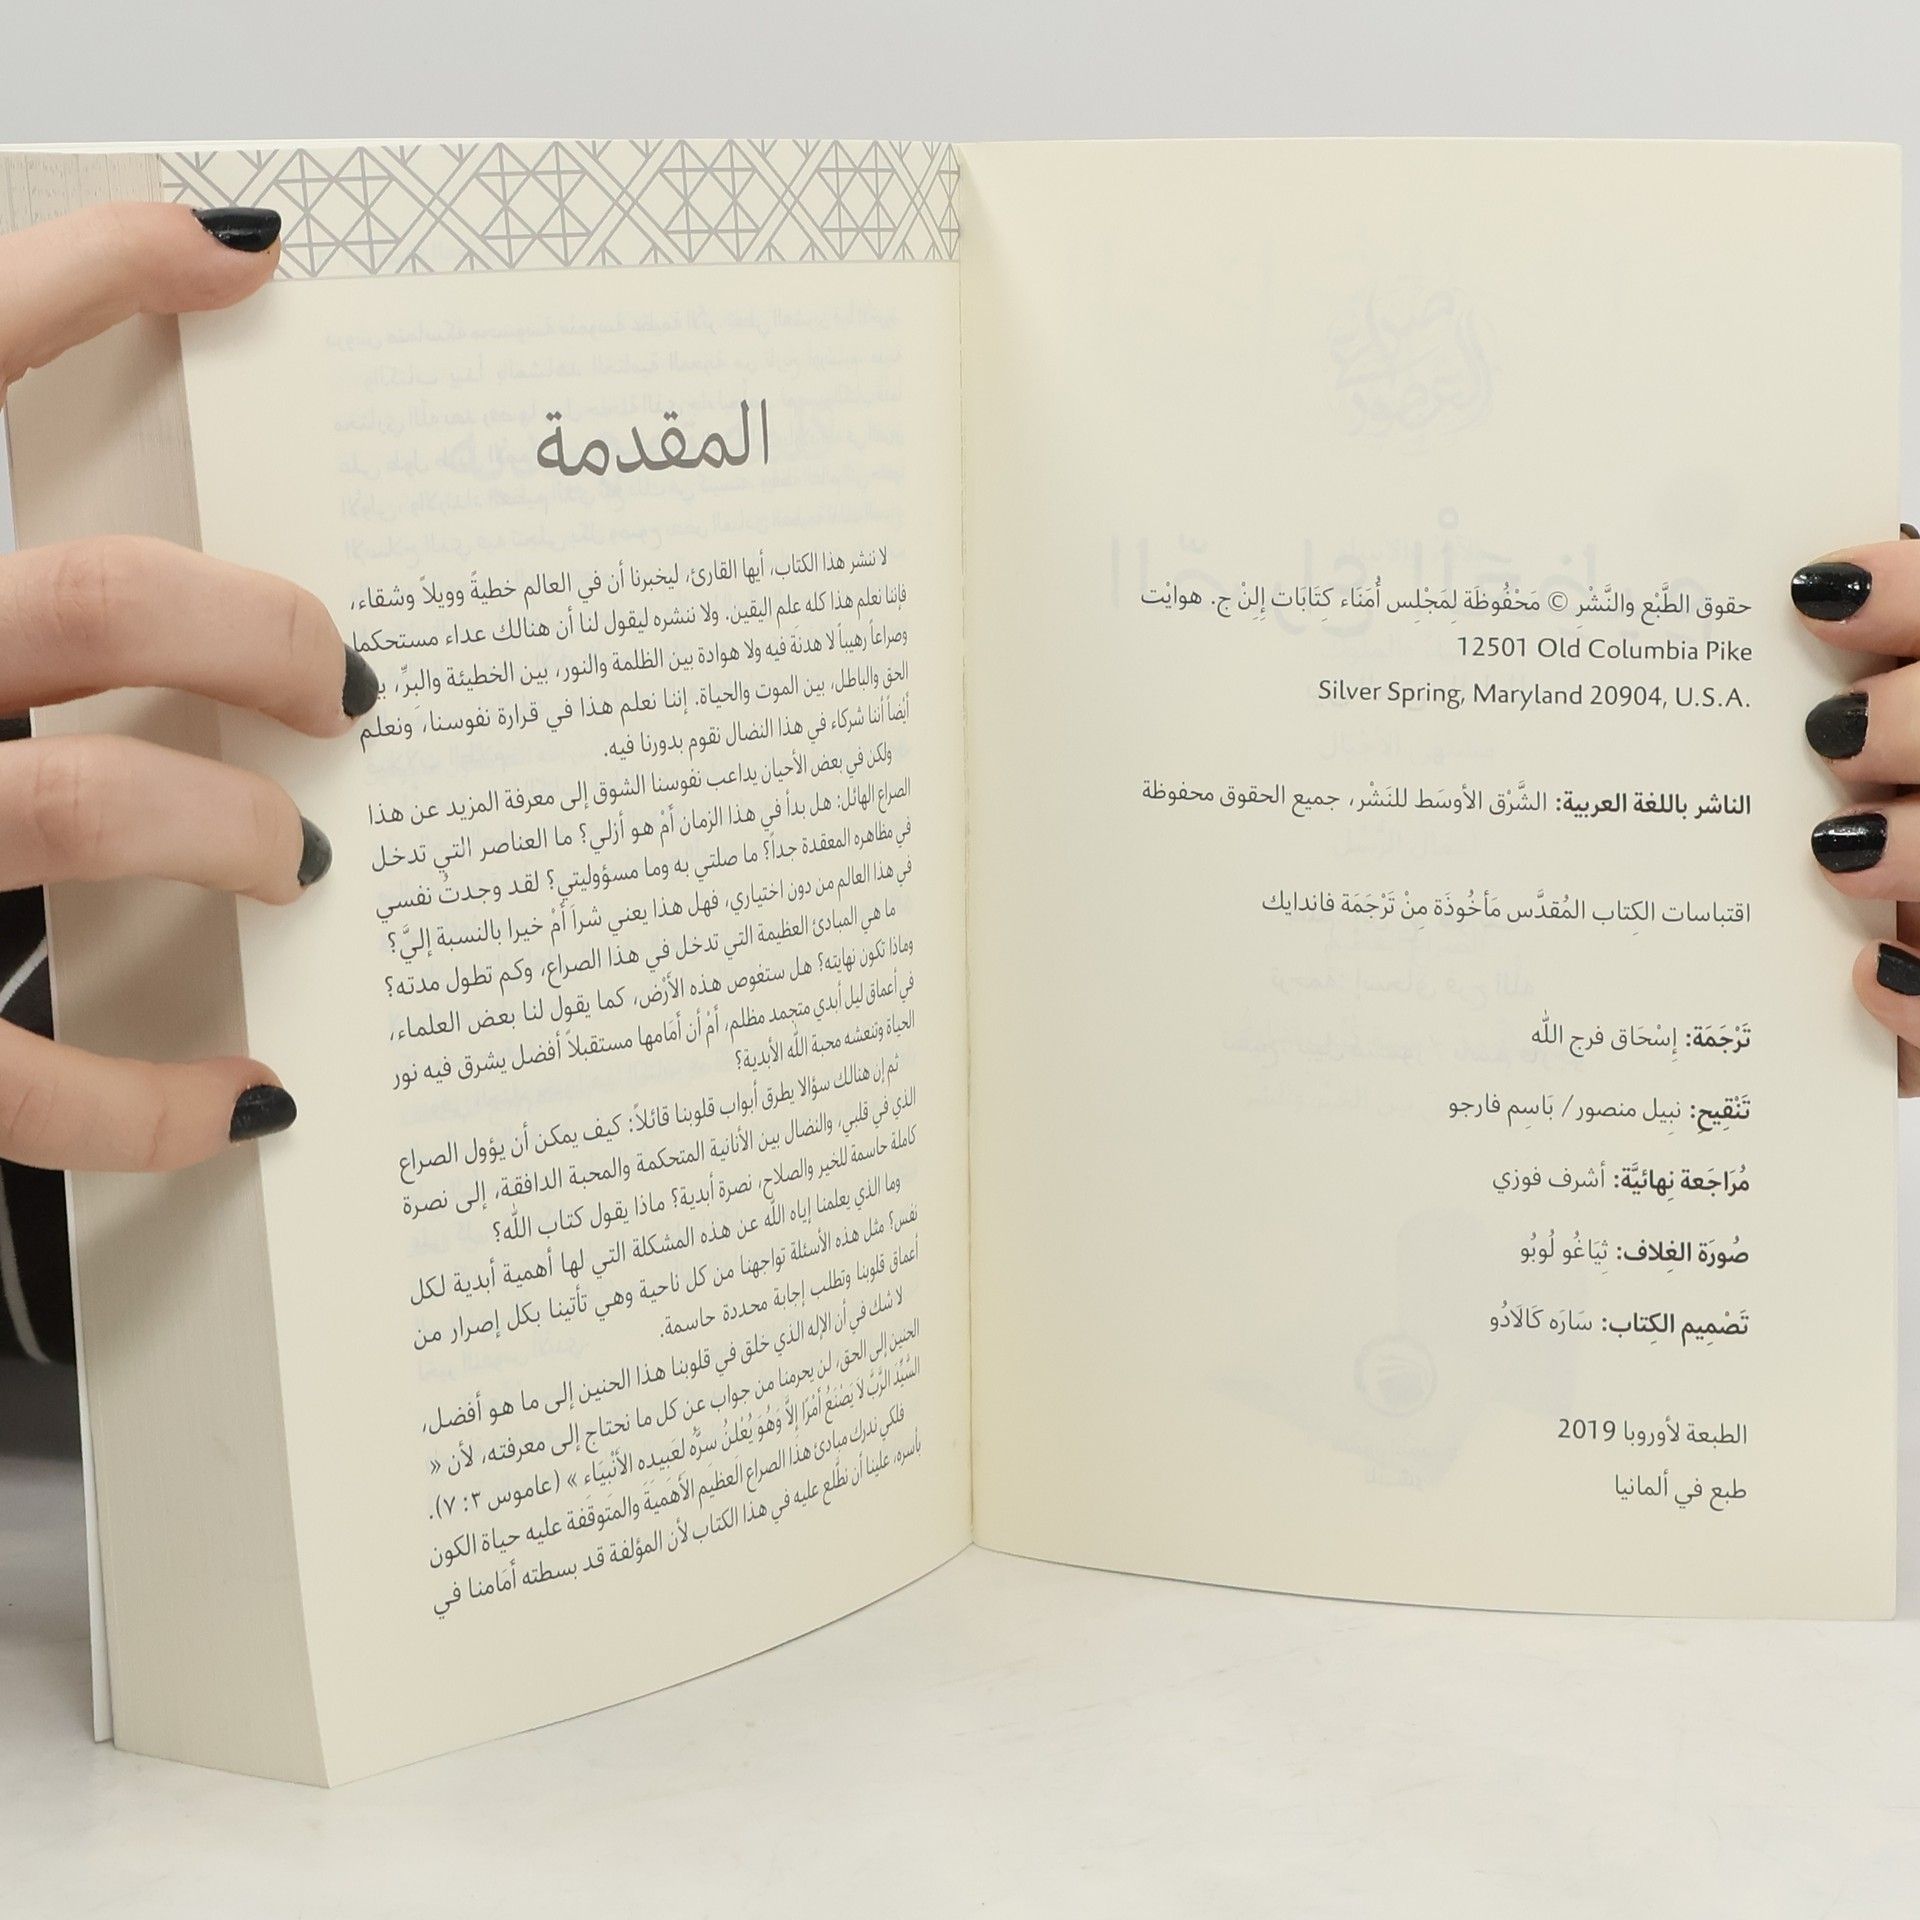 حقوق الطَّبْع والنَّشْر © مَحْفُوظَة لِمَجْلِس أُمَنَاء كِتَابَات إِلِنْ ج. هوايْت
12501 Old Columbia Pike
Silver Spring, Maryland 20904, U.S.A.
الناشر باللغة العربية: الشَّرْق الأوسَط للنَشْر، جميع الحقوق محفوظة
اقتباسات الكِتاب المُقدَّس مَأخُوذَة مِنْ تَرْجَمَة فاندايك
تَرْجَمَة: إسْحَاق فرج الله
تَنْقِيح: نبِيل منصور/ بَاسِم فارجو
مُرَاجَعة نِهائيَّة: أشرف فوزي
صُورَة الغِلاف: ثِيَاغُو لُوبُو
تَصْمِيم الكِتاب: سَارَه كَالَادُو
الطبعة لأوروبا 2019
طبع في ألمانيا
المقدمة
لا ننشر هذا الكتاب، أيها القارئ، ليخبرنا أن في العالم خطيةً وويلاً وشقاء،
فإننا نعلم هذا كله عِلم اليقين. ولا ننشره ليقول لنا أن هنالك عداء مستحكما
وصراعاً رهيباً لا هدنة فيه ولا هوادة بين الظلمة والنور، بين الخطيئة والبِرِّ،
الحق والباطل، بين الموت والحياة. إننا نعلم هذا في قرارة نفوسنا، ونعلم
أيضاً أننا شركاء في هذا النضال نقوم بدورنا فيه.
ولكن في بعض الأحيان يداعب نفوسنا الشوق إلى معرفة المزيد عن هذا
الصراع الهائل: هل بدأ في هذا الزمان أمْ هو أزلي؟ ما العناصر التي تدخل
في مظاهره المعقدة جداً؟ ما صلتي به وما مسؤوليتي؟ لقد وجدتُ نفسي
في هذا العالم من دون اختياري، فهل هذا يعني شراً أمْ خيرا بالنسبة إليَّ؟
ما هي المبادئ العظيمة التي تدخل في هذا الصراع، وكم تطول مدته؟
وماذا تكون نهايته؟ هل ستغوص هذه الأرْض، كما يقول لنا بعض العلماء،
في أعماق ليل أبدي متجمد مظلم، أمْ أن أمَامها مستقبلاً أفضل يشرق فيه نور
الحياة وتنعشه محبة الله الأبدية؟
ثم إن هنالك سؤالا يطرق أبواب قلوبنا قائلاً: كيف يمكن أن يؤول الصراع
الذي في قلبي، والنضال بين الأنانية المتحكمة والمحبة الدافقة، إلى نصرة
كاملة حاسمة للخير والصلاح، نصرة أبدية؟ ماذا يقول كتاب الله؟
وما الذي يعلمنا إياه الله عن هذه المشكلة التي لها أهمية أبدية لكل
نفس؟ مثل هذه الأسئلة تواجهنا من كل ناحية وهي تأتينا بكل إصرار من
أعماق قلوبنا وتطلب إجابة محددة حاسمة.
لا شك في أن الإله الذي خلق في قلوبنا هذا الحنين إلى ما هو أفضل،
الحنين إلى الحق، لن يحرمنا من جواب عن كل ما نحتاج إلى معرفته، لأن «
السَّيِّدَ الرَّبَّ لاَ يَصْنَعُ أمْرًا إِلاَّ وَهُوَ يُعْلِنُ سِرَّهُ لِعَبِيدِهِ الأَنْبِيَاءِ » (عاموس ٣: ٧).
فلكي ندرك مبادئ هذا الصراع العظيم الأهَميَة والمتَوقفة عليه حياة الكون
بأسره، علينا أن نطَّلع عليه في هذا الكتاب لأن المؤلفة قد بسطته أمَامنا في